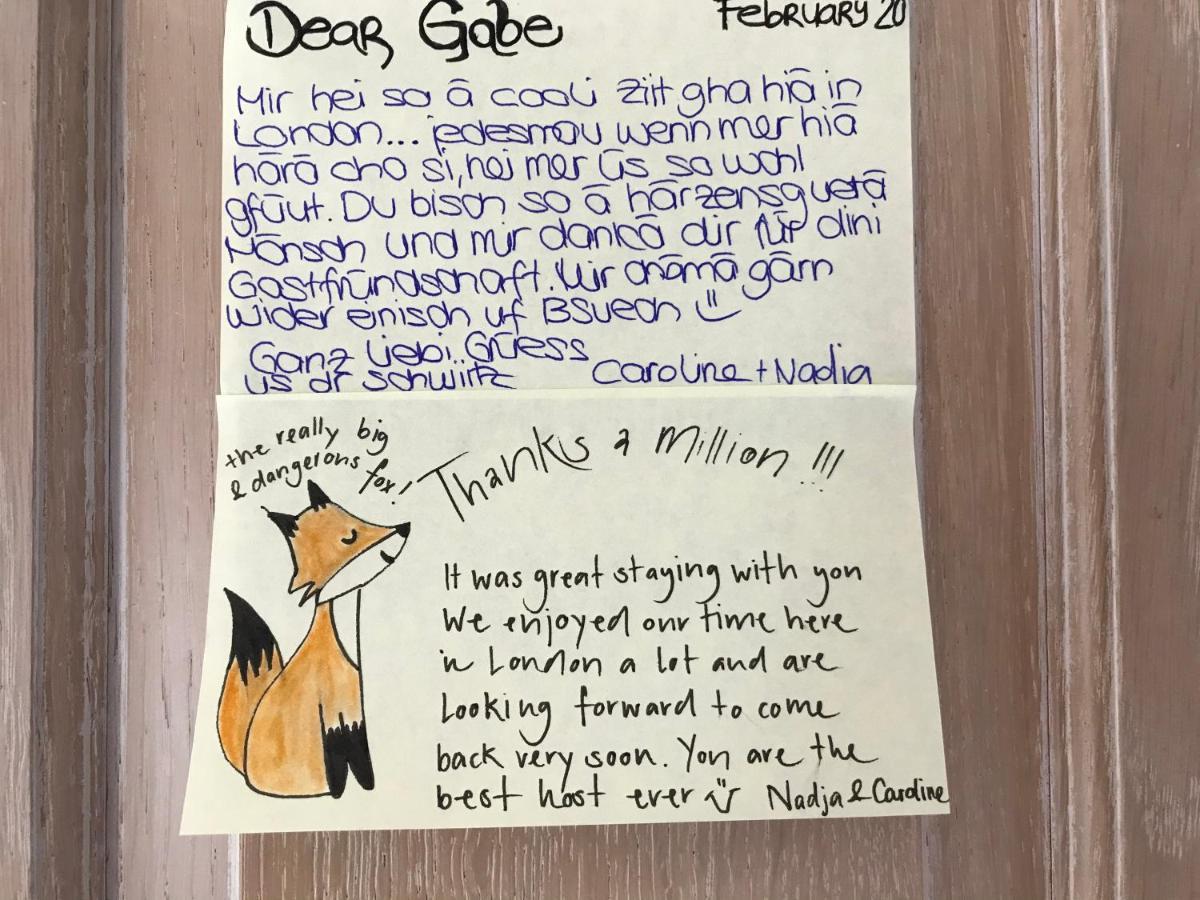 Dear Gabe
February 20
Mir hei so ā cooli ziit gha hiā in
London... jedesmau wenn mer hiā
hārā cho si, hei mer ūs so wohl
gfūut. Du bisch so ā hārzensguetā
Mōnsch und mir dankā dir für dini
Gastfründschaft. Mir chōmā gārn
wider einisch uf Bsuech
Ganz liebi Grüess
us dr schwiitz Caroline + Nadja
the really big
& dangerous fox!
Thanks a Million !!!
It was great staying with you
We enjoyed our time here
in London a lot and are
Looking forward to come
back very soon. You are the
best host ever Nadja & Caroline